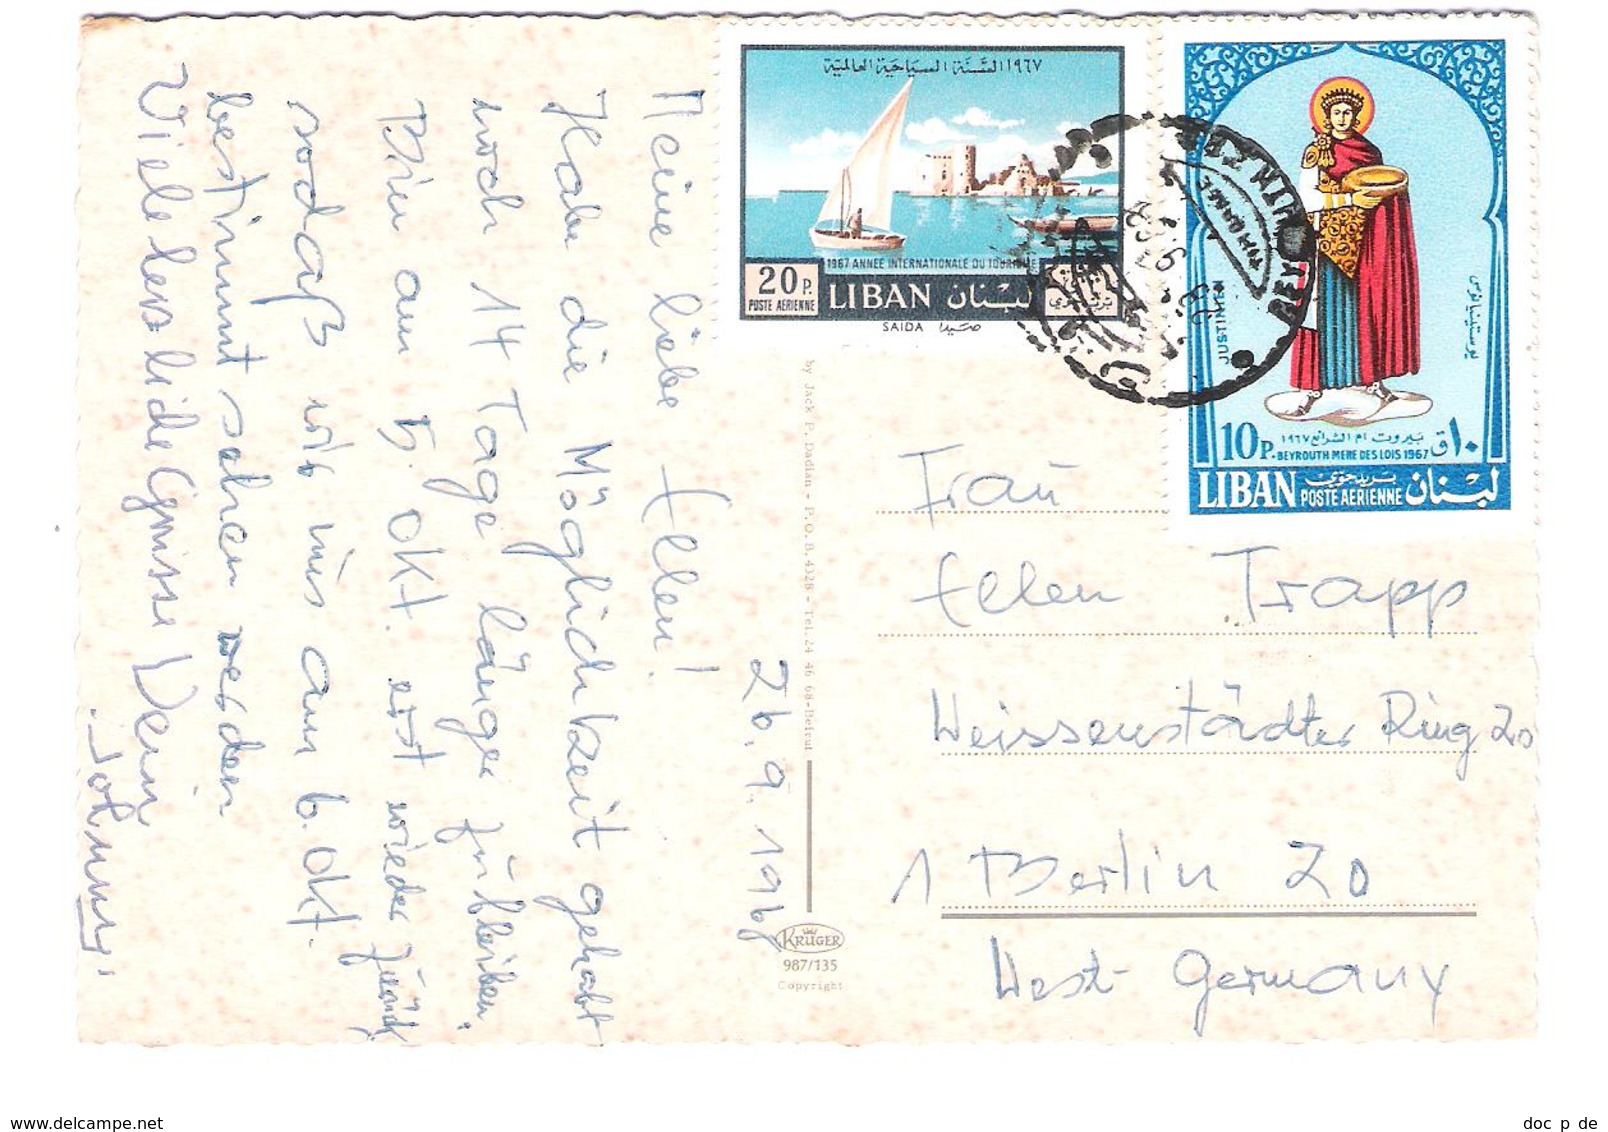 Meine liebe Ellen!
Habe die Möglichkeit gehabt
noch 14 Tage länger zu bleiben.
Bin am 5. Okt. erst wieder zurück
sodaß wir uns am 6. Okt.
bestimmt sehen werden
Viele Grüsse Dein
Johnny.
26.9.196
by Jack P. Dadian - P.O.B. 4328 - Tel. 24 46 68-Beirut
KRÜGER
987/135
Copyright
١٩٦٧ السنة السياحية العالمية
1967 ANNEE INTERNATIONALE DU TOURISME
20 P.
POSTE AÉRIENNE
LIBAN لبنان
SAIDA صيدا
JUSTINIEN
يوستينيانوس
10 P. ١٠ ق
بيروت ام الشرائع ١٩٦٧
BEYROUTH MERE DES LOIS 1967
LIBAN بريد جوي لبنان
POSTE AERIENNE
Frau
Ellen Trapp
Weissenstädter Ring 20
1 Berlin 20
West Germany
doc_p_de